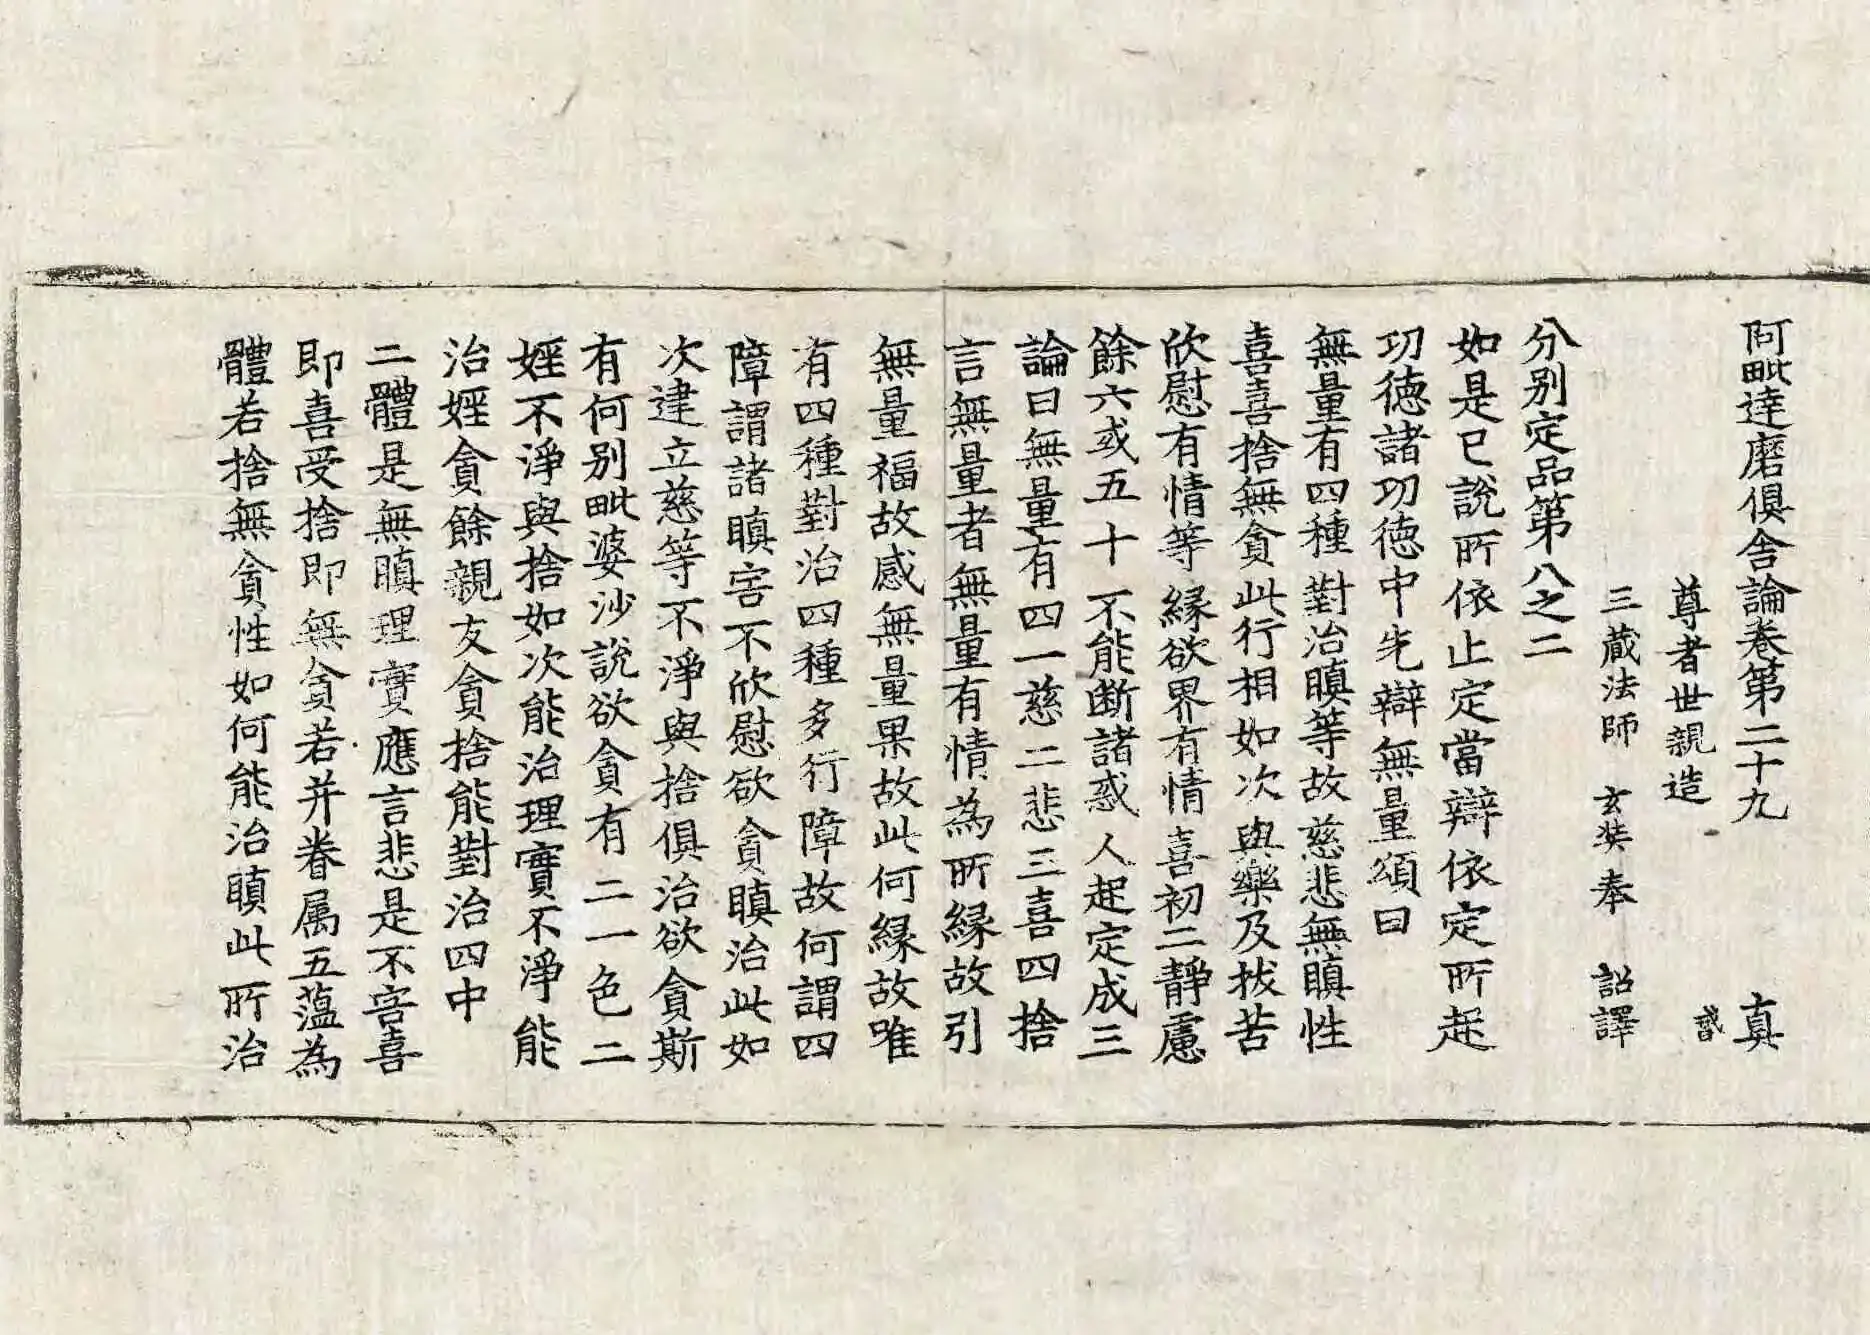 阿毗達磨俱舍論卷第二十九　真
尊者世親造
三藏法師　玄奘奉　詔譯
分別定品第八之二
如是已說所依止定當辯依定所起
功德諸功德中先辯無量頌曰
無量有四種對治瞋等故慈悲無瞋性
喜喜捨無貪此行相如次與樂及拔苦
欣慰有情等緣欲界有情喜初二靜慮
餘六或五十不能断諸惑人起定成三
論曰無量有四一慈二悲三喜四捨
言無量者無量有情為所緣故引
無量福故感無量果故此何緣故唯
有四種對治四種多行障故何謂四
障謂諸瞋害不欣慰欲貪瞋治此如
次建立慈等不淨與捨俱治欲貪斯
有何別毗婆沙說欲貪有二一色二
婬不淨與捨如次能治理實不淨能
治婬貪餘親友貪捨能對治四中
二體是無瞋理實應言悲是不害喜
即喜受捨即無貪若并眷属五蕰為
體若捨無貪性如何能治瞋此所治